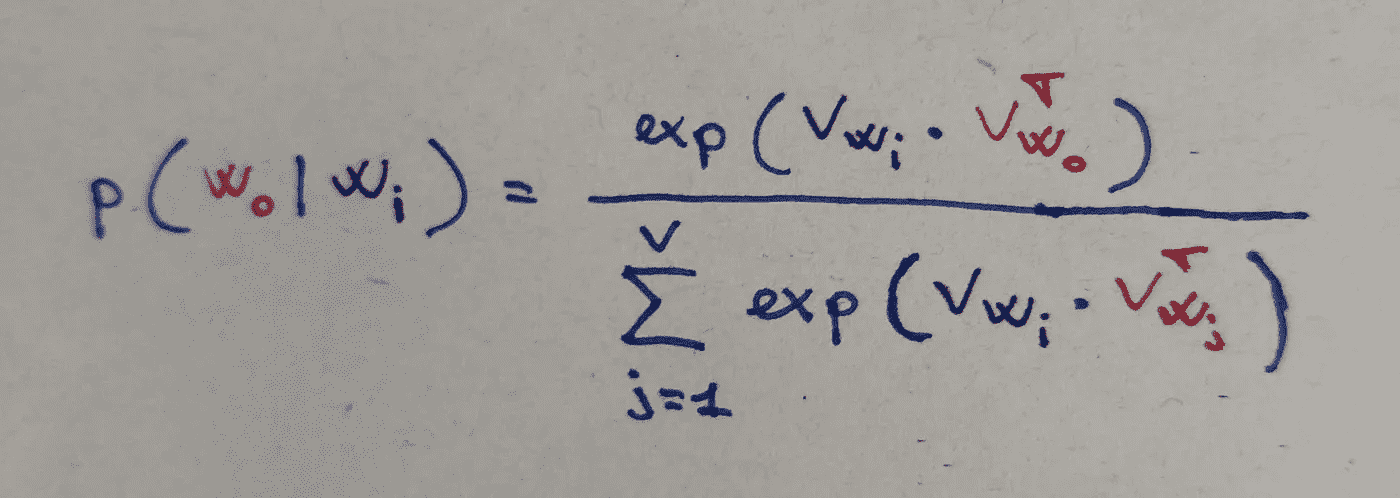 p(w₀|wᵢ) = exp(V_wᵢ · V_w₀ᵀ) / ∑_{j=1}^{V} exp(V_wᵢ · V_wⱼᵀ)